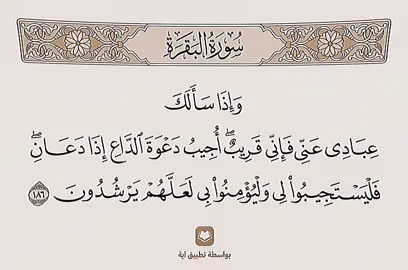 سُورَةُ البَقَرَةِ
وَإِذَا سَأَلَكَ
عِبَادِى عَنِّى فَإِنِّى قَرِيبٌ ۖ أُجِيبُ دَعْوَةَ ٱلدَّاعِ إِذَا دَعَانِ ۖ
فَلْيَسْتَجِيبُوا۟ لِى وَلْيُؤْمِنُوا۟ بِى لَعَلَّهُمْ يَرْشُدُونَ ١٨٦
بواسطة تطبيق آية